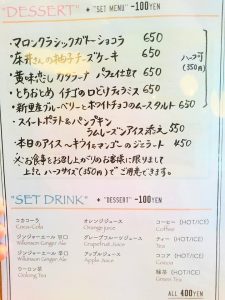 "DESSERT" + "SET MENU" -100YEN
・マロンクラシックガトーショコラ 650
・床井さんの柚子チーズケーキ 650
・黄味恋しカタラーナ パフェ仕立て 650
・とちおとめ イチゴのロどけティラミス 650
・新里産ブルーベリーとホワイトチョコのムースタルト 650
ハーフ可
(350円)
・スイートポテト&パンプキン
ラムレーズンアイス添え 550
・本日のアイス〜キウイとマンゴーのジェラート 450
※お食事をお召し上がりのお客様に限りまして
上記ハーフサイズ(350円)でご用意できます。
"SET DRINK" + "DESSERT" -100YEN
コカコーラ
Coca-Cola
ジンジャーエール 辛口
Wilkinson Ginger Ale
ジンジャーエール 甘口
Wilkinson Ginger Ale
ウーロン茶
Oolong Tea
オレンジジュース
Orange Juice
グレープフルーツジュース
Grapefruit Juice
アップルジュース
Apple Juice
コーヒー (HOT/ICE)
Coffee
ティー (HOT/ICE)
Tea
ココア (HOT/ICE)
Cocoa
緑茶 (HOT/ICE)
Green Tea
ALL 400YEN